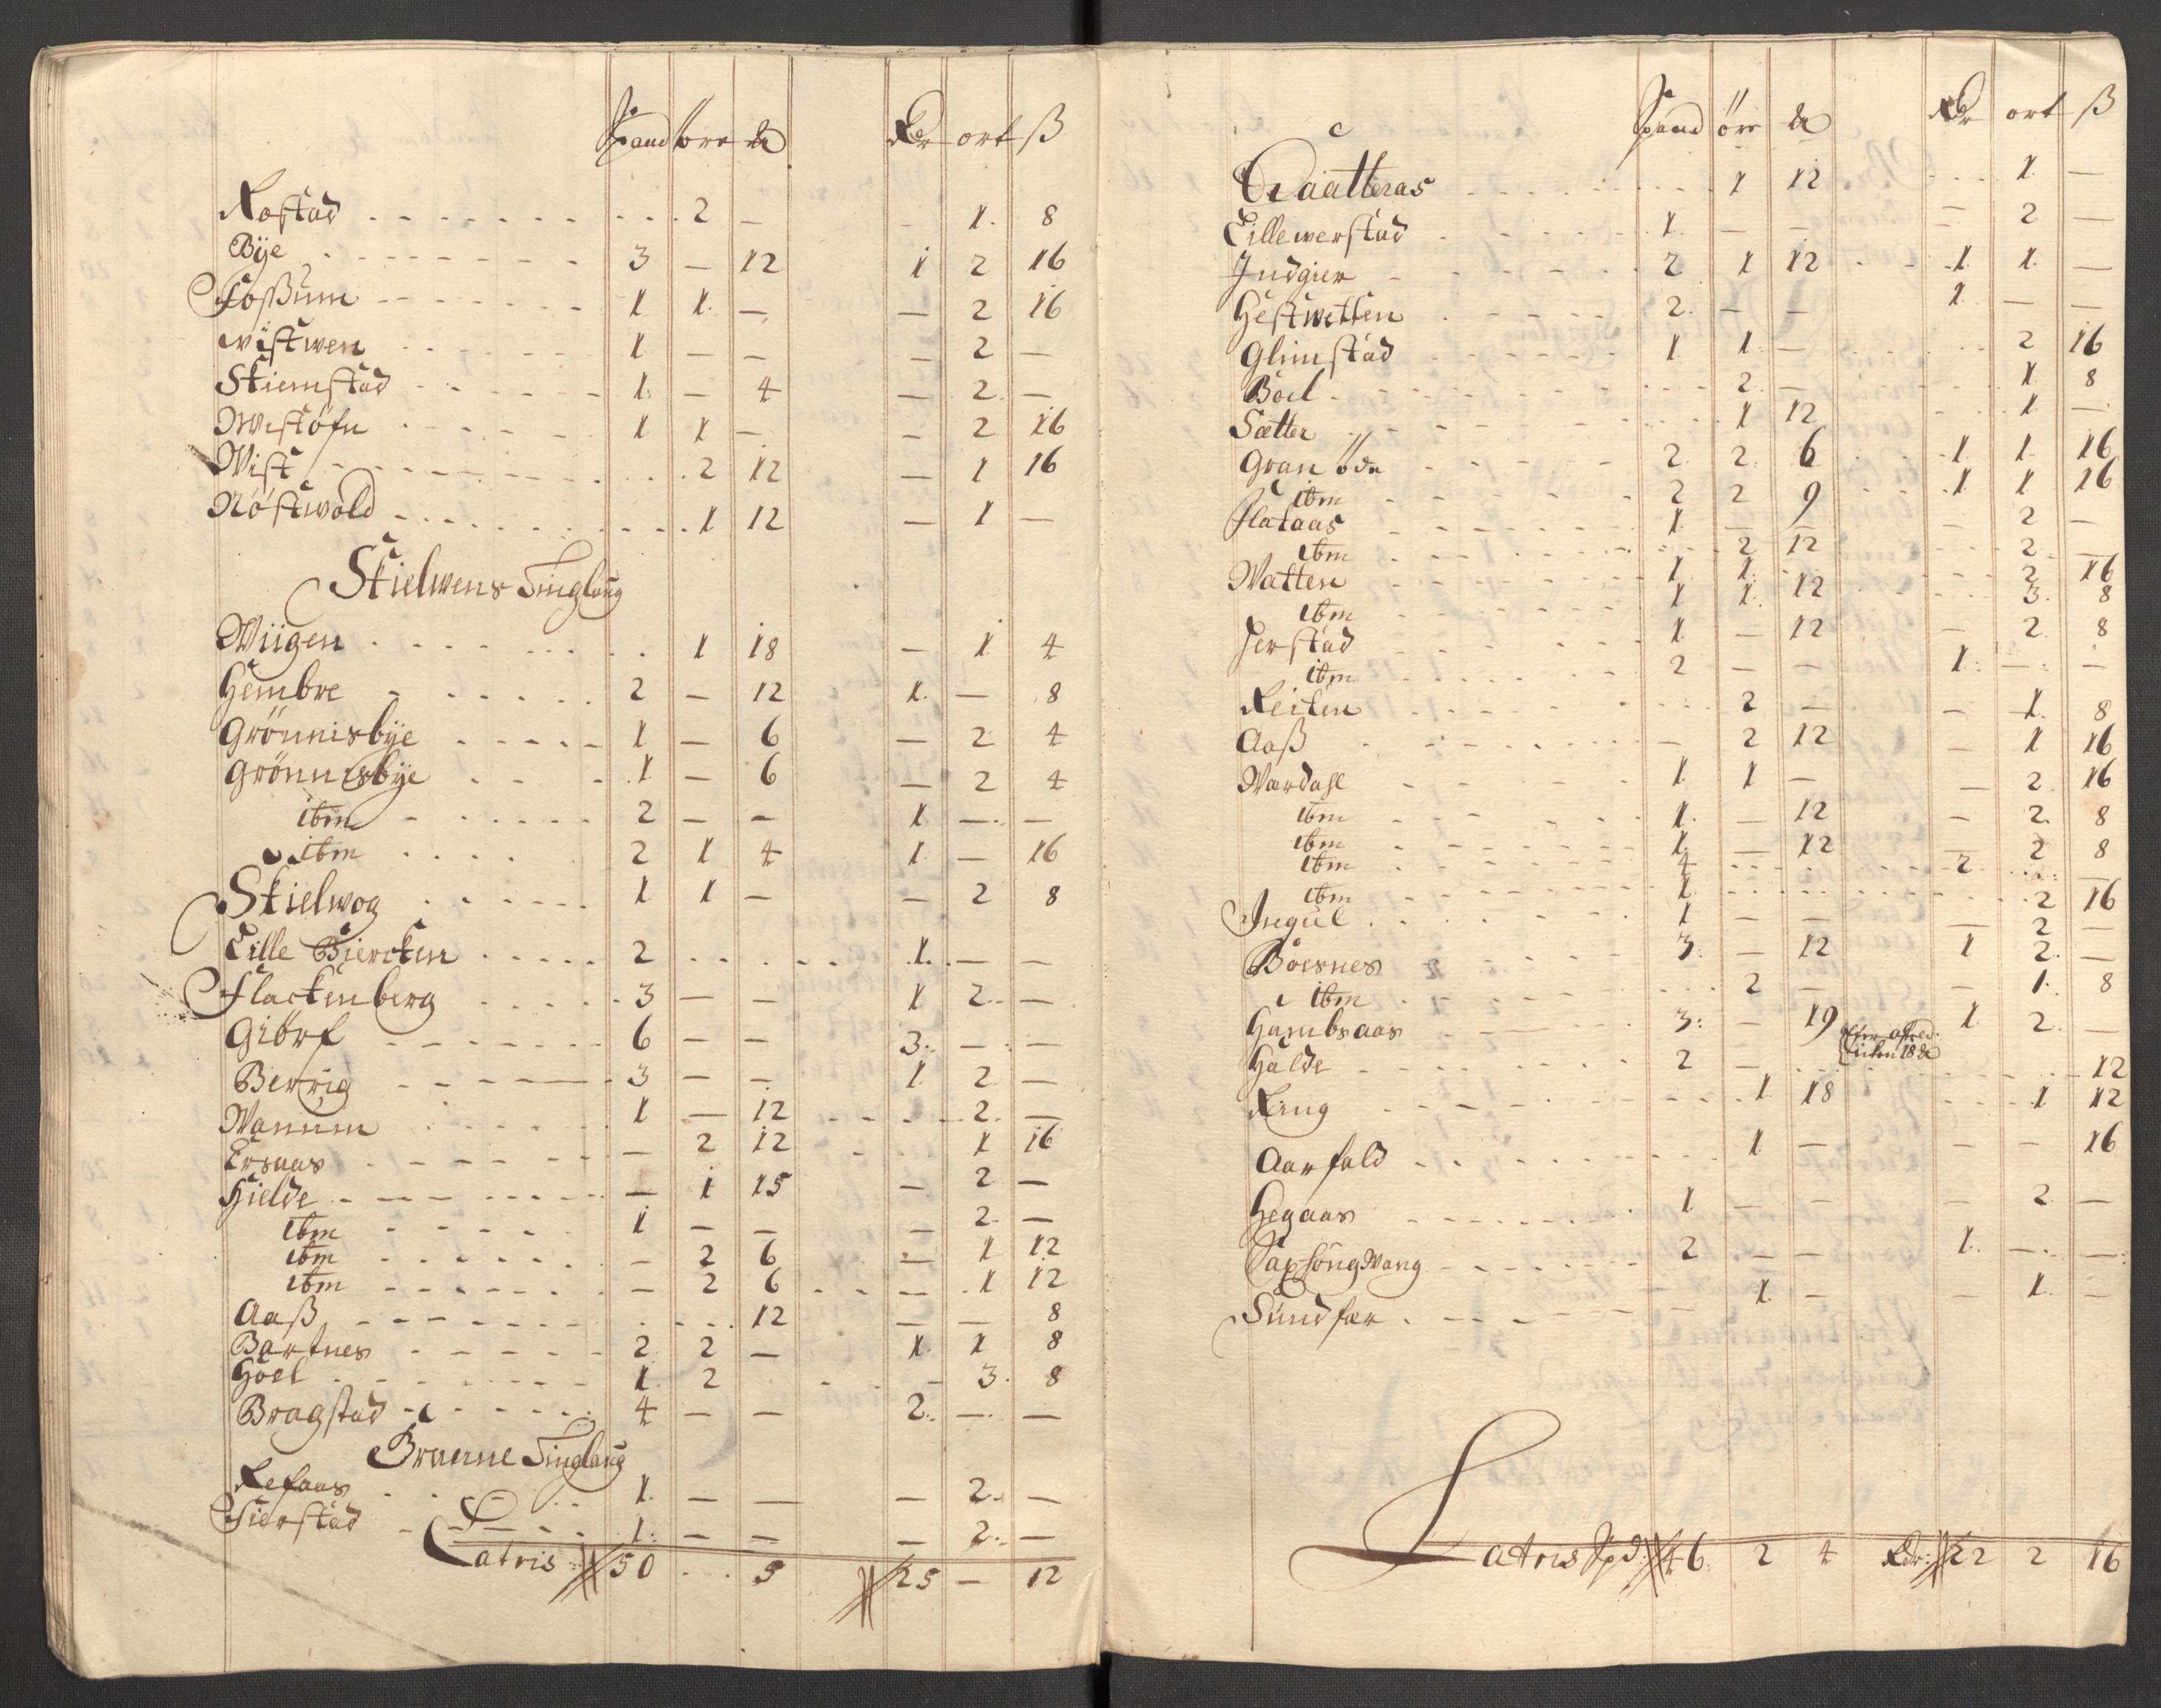 Spand öre & Rdr ort ß
Rostad 2 — - 1. 8
Bÿe 3 — 12 1 2 16
Foßum 1 1. — — 2 16
wistwen 1 — — — 2 —
Stiemstad 1. — 4 — 2. —
Westöfn 1 1 — — 2 16
Wist 2 12 — 1 16
Nöstwold 1 12 — 1 —
Stielwens Tinglaug
Wiigen 1 18 — 1 4
Hembre 2 — 12 1. — 8
Grönnisbÿe 1 — 6 — 2 4
Grönnesbÿe 1 — 6 — 2 4
ibm 2 — — 1. — —
ibm 2 1 4 1. — 16
Stielwog 1 1 — — 2 8
Lille Biercken 2 1. — —
Flackenberg 3 — — 1 2. —
Giörf 6 — — 3. — —
Berrig 3 — — 1. 2 —
Wannum 1 — 12 2. —
Ersaas — 2 12 1 16
Hielde — 1 15 — 2 —
ibm 1 — — — 2. —
ibm — 2 6 — 1 12
ibm — 2 6 — 1 12
Aaß 12 — — 8
Bartnes 2 2 — 1. 1 8
Höel 1. 2 — 3. 8
Bragstad 4 — — 2. — —
Bruerne Tinglaug
Refaas 1. — — — 2. —
Fierstad 1. — — — 2. —
Latris 50 5 25 — 12
Spand öre & Rdr ort ß
Qvaatteras 1 12 1. —
Lillewerstad 1. — — — 2 —
Indgier 2 1 12 1. 1. —
Hestwetten 2. — — 1. — —
Glimstad 1 1. — 2 16
Böel 2. — 1. 8
Sætter 1 12 1. —
Gran öde 2 2. 6 1. 1. 16
ibm 2 2 9 1 1 16
Flataas 1. — — — 2 —
ibm 2 12 2. —
Watten 1. 1. 2 16
ibm 1 1. 12 3. 8
Jerstad 1. — 12 — 2. 8
ibm 2 — — 1. — —
Reiten 2 — — 1. 8
Aaß — 2 12 — 1 16
Wærdahl 1 1 — — 2. 16
ibm 1. — 12 — 2. 8
ibm 1. — 12 — 2 8
ibm 4 2
ibm 1. 2 16
Ingul 1 — — — 2 —
Böesnes 3. — 12 1 2. —
ibm 2 — — 1. 8
Hambsaas 3: — 19 1. 2. —
Halde 2 — 12
Ring 1 18 1 12
Aarfald 1 — — — 16
Hegaas 1. — — — 2 —
Saxhöugwang 2 — — 1. — —
Sundfær 1. — — 1. —
Latris Spd: 46. 2 4 Rdr: 22 2 16